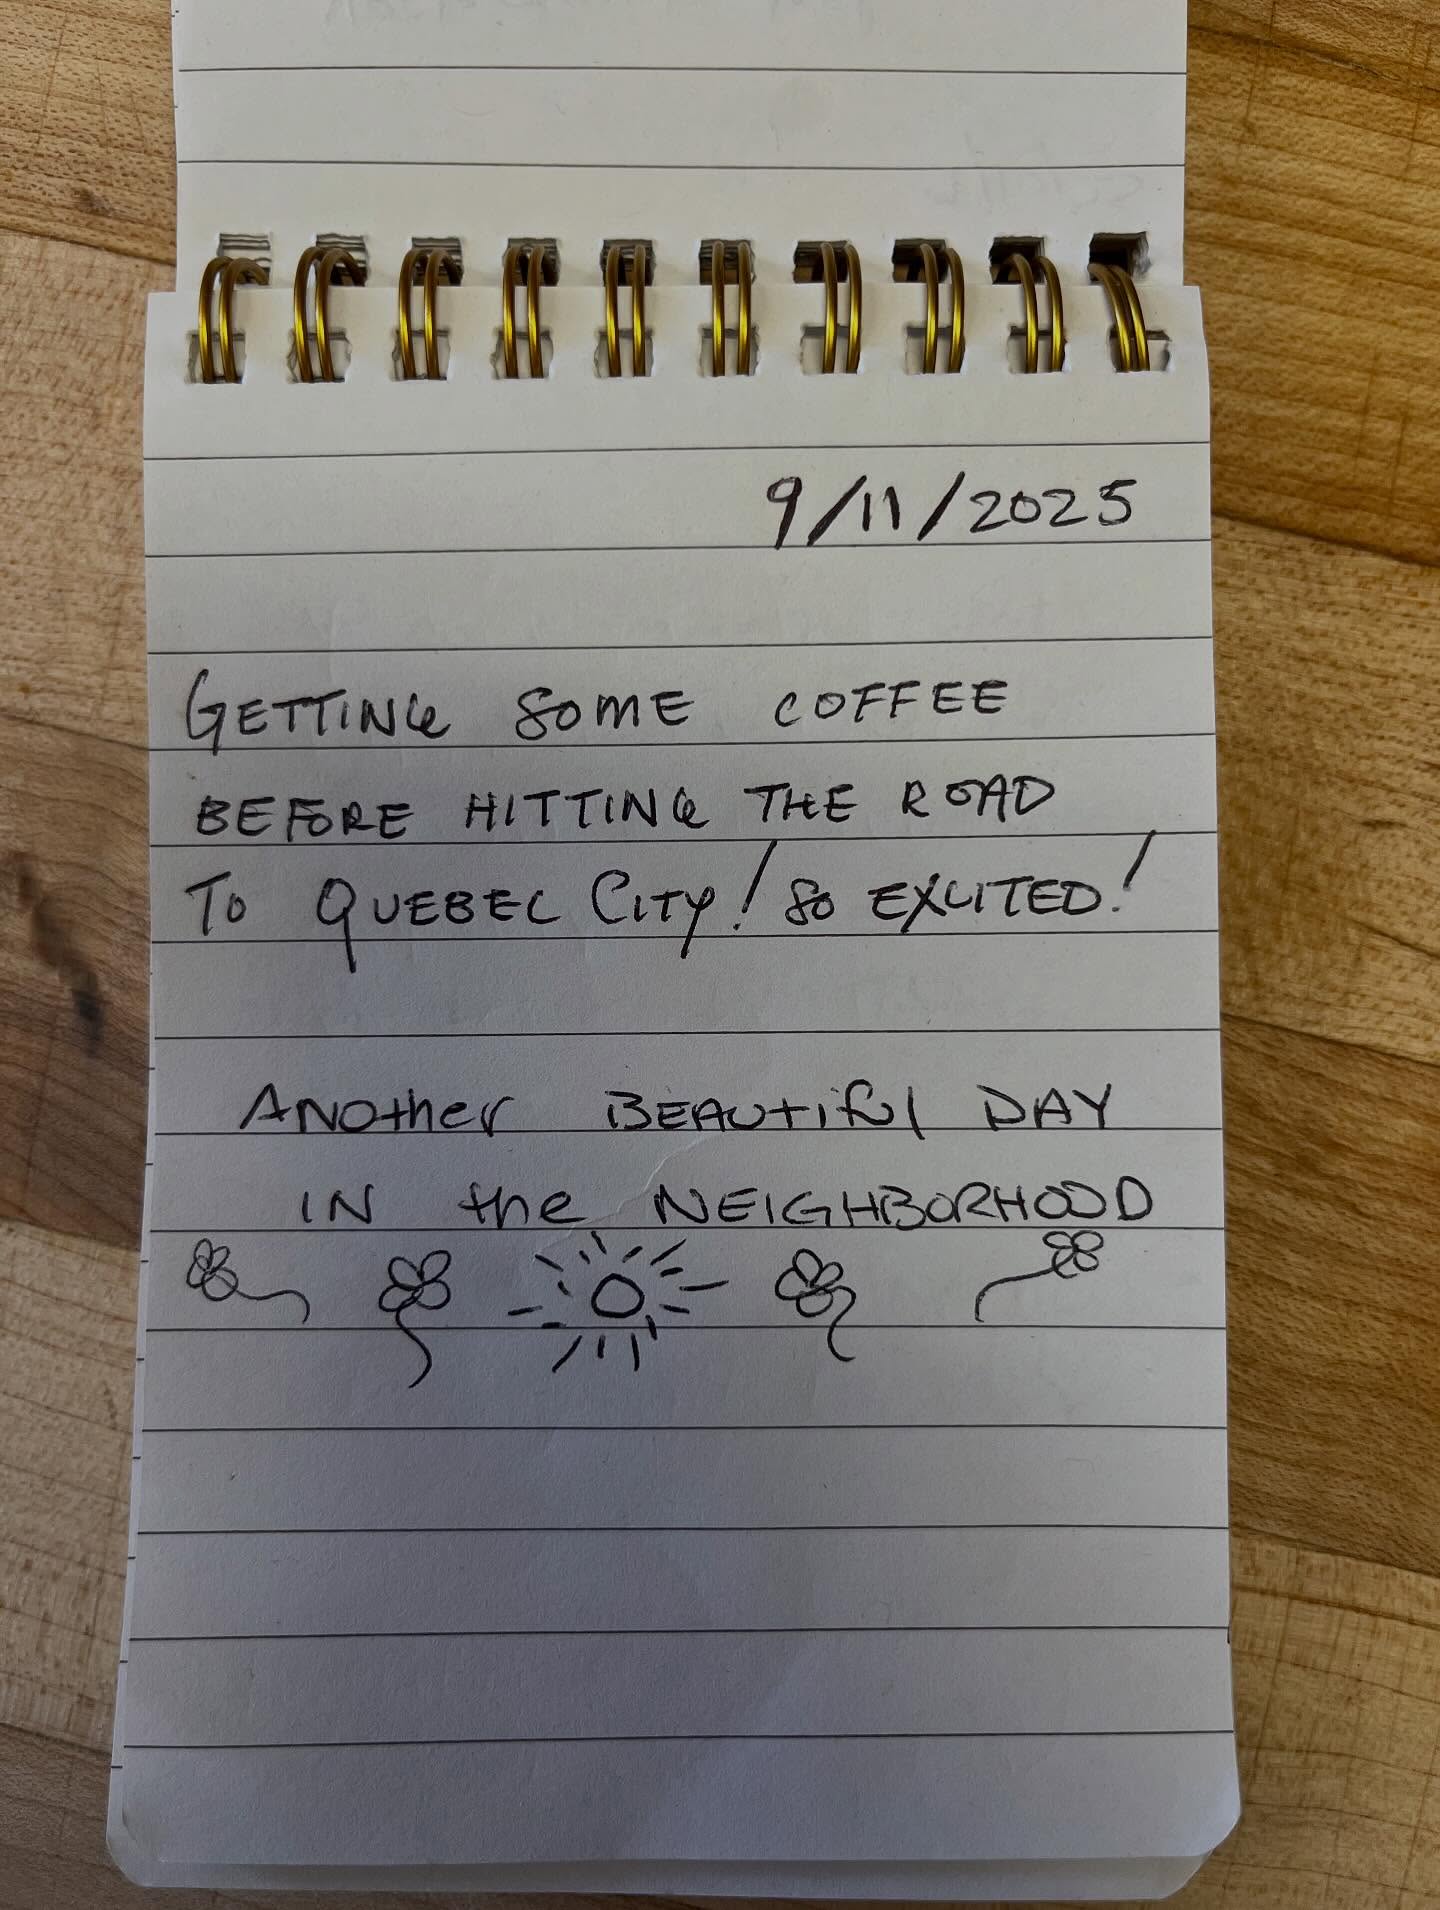 9/11/2025
GETTING SOME COFFEE
BEFORE HITTING THE ROAD
TO QUEBEC CITY! SO EXCITED!
ANOther BEAUtiful DAY
IN the NEIGHBORHOOD